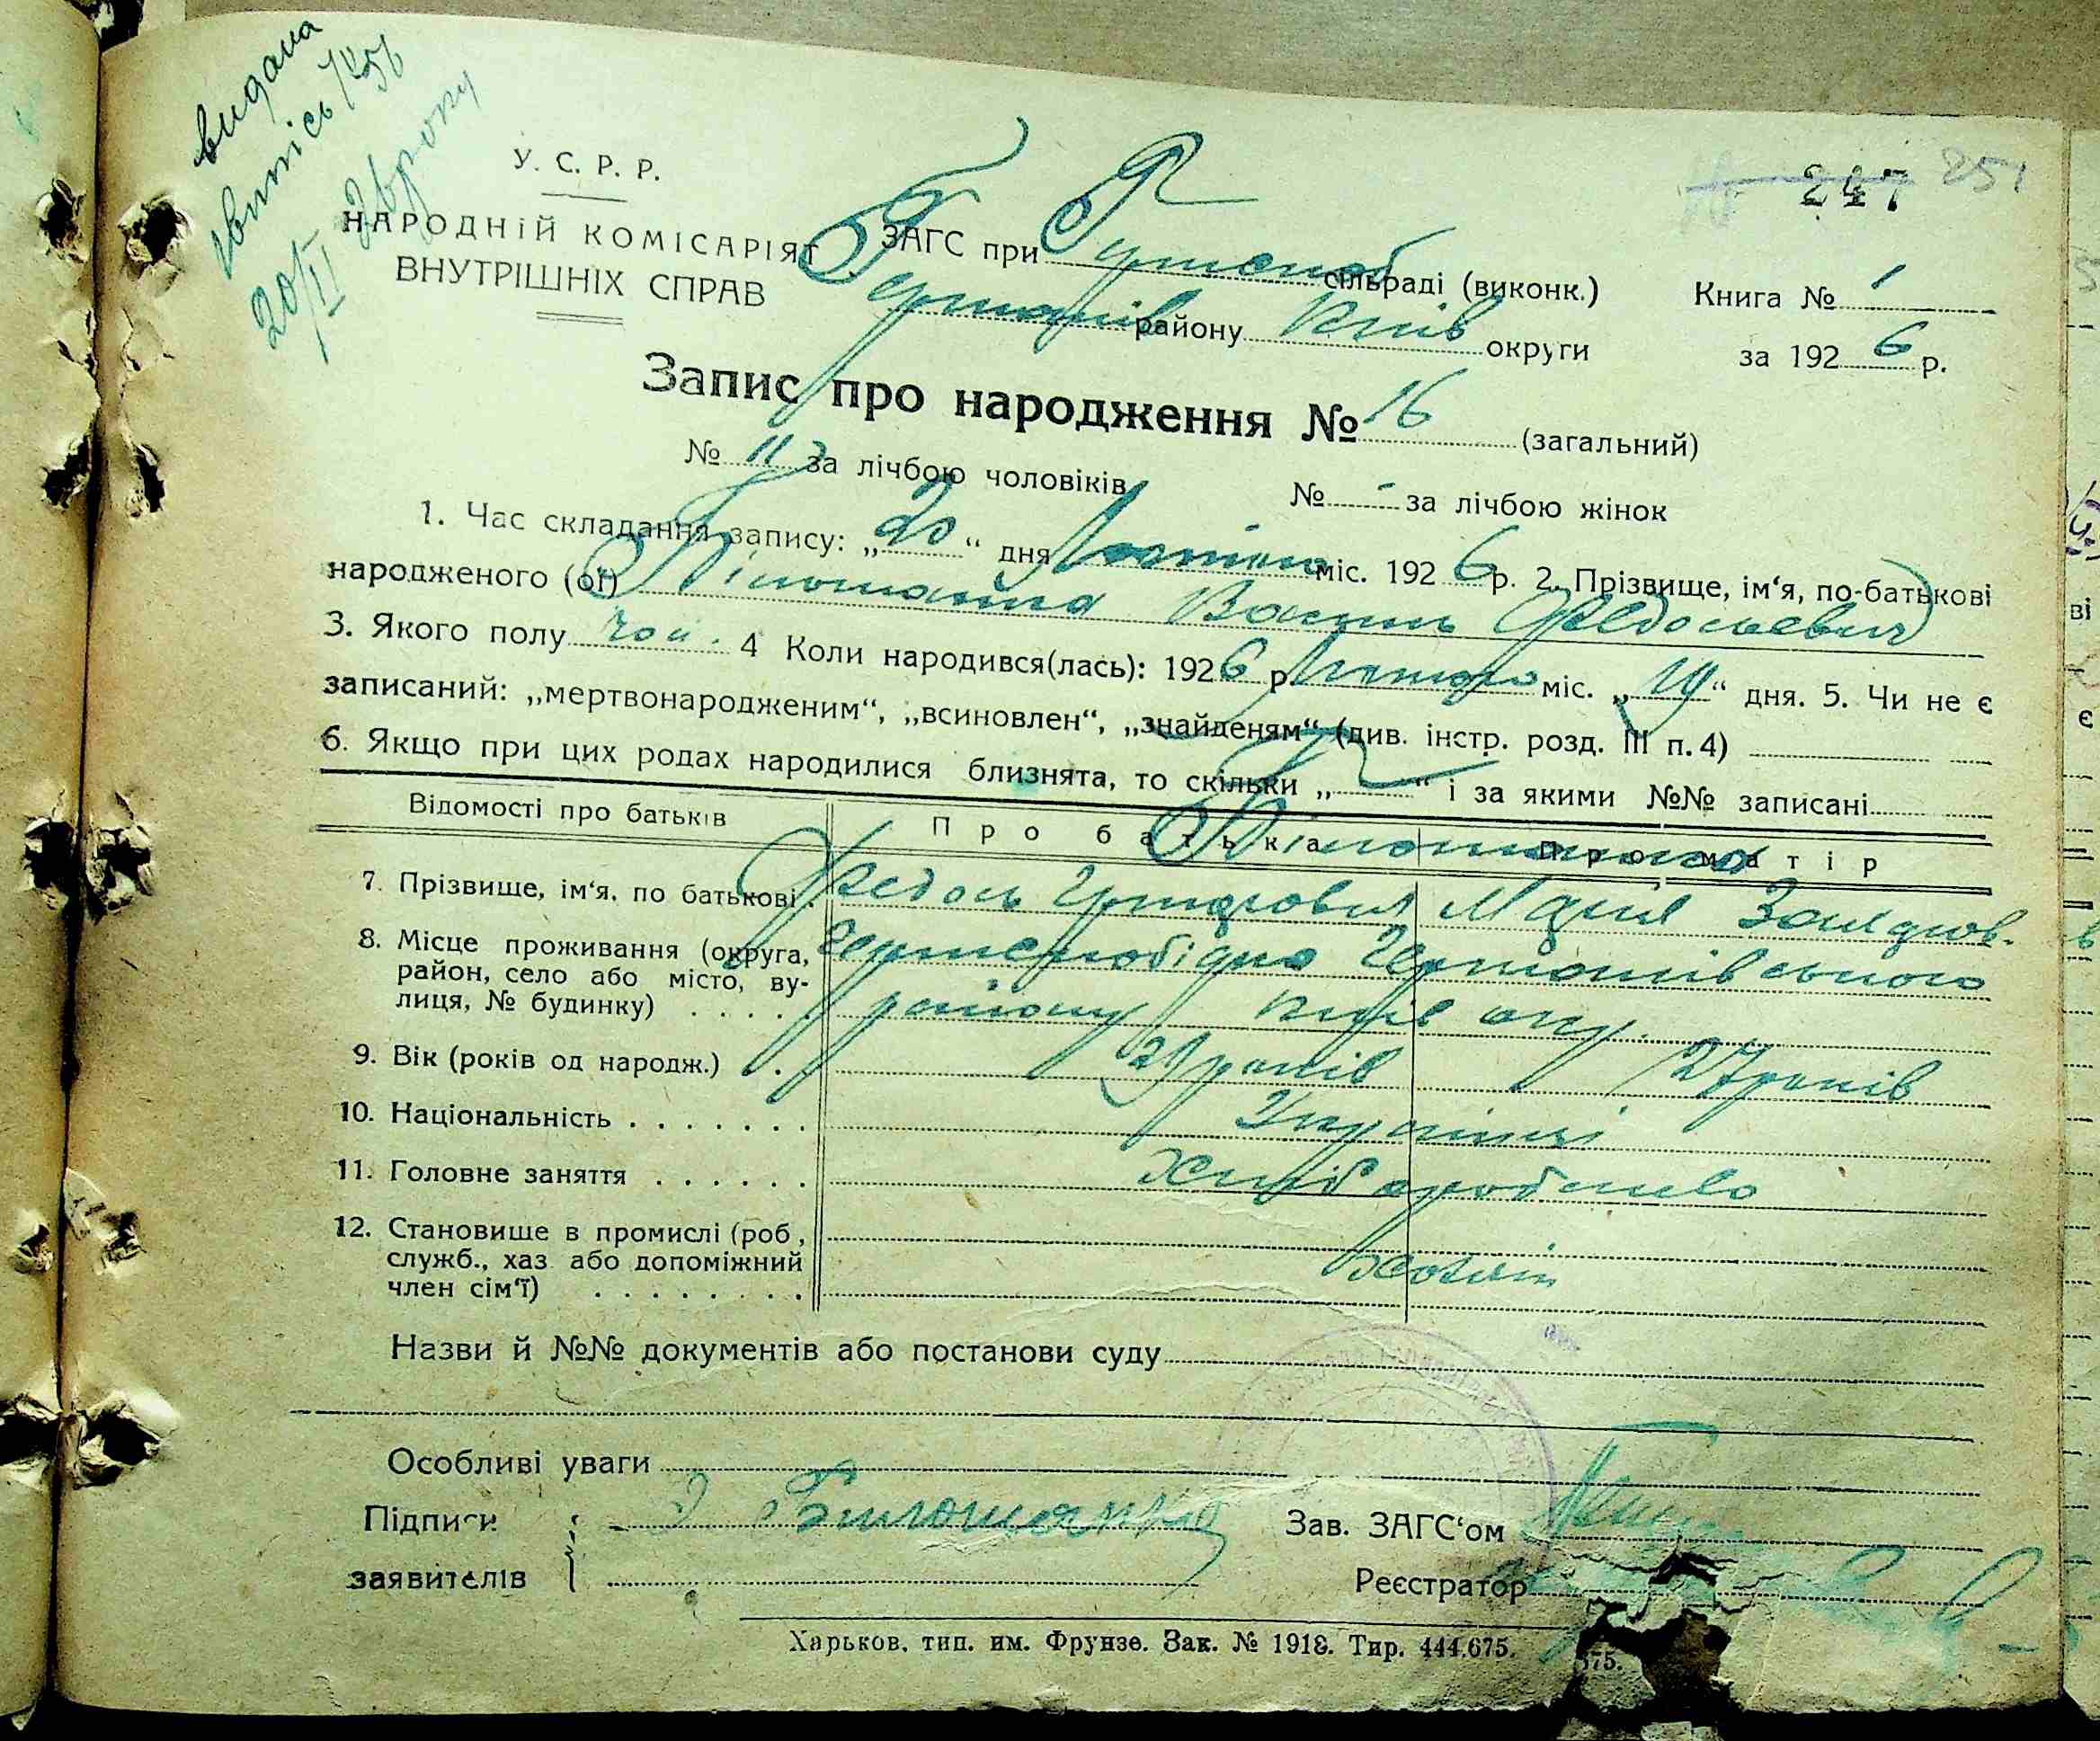 видана
У. С. Р. Р.
НАРОДНІЙ КОМІСАРІЯТ
ВНУТРІШНІХ СПРАВ
247 251
ЗАГС при сільраді (виконк.)
району Київ округи
Книга № 1
за 1926 р.
Запис про народження № 16 (загальний)
№ 11 за лічбою чоловіків № - за лічбою жінок
1. Час складання запису: „20“ дня Лютого міс. 1926 р. 2. Прізвище, ім‘я, по-батькові
народженого (ої) Білошапка Василь Федосьевич
3. Якого полу чол. 4 Коли народився(лась): 1926 р. Лютого міс. „19“ дня. 5. Чи не є
записаний: „мертвонародженим“, „всиновлен“, „знайденям“ (див. інстр. розд. III п. 4)
6. Якщо при цих родах народилися близнята, то скільки „ “ і за якими №№ записані
Відомості про батьків Про батька Про матір
Білошапка
7. Прізвище, ім‘я, по батькові Федось Григорович Марія
8. Місце проживання (округа, Германівського
район, село або місто, ву-
лиця, № будинку) району Київ окр.
9. Вік (років од народж.) років 27 років
10. Національність Українці
11. Головне заняття Хліборобство
12. Становище в промислі (роб,
служб., хаз або допоміжний
член сім‘ї)
Назви й №№ документів або постанови суду
Особливі уваги
Підписи Білошапка Зав. ЗАГС‘ом
заявителів Реєстратор
Харьков, тип. им. Фрунзе. Зак. № 1918. Тир. 444.675.